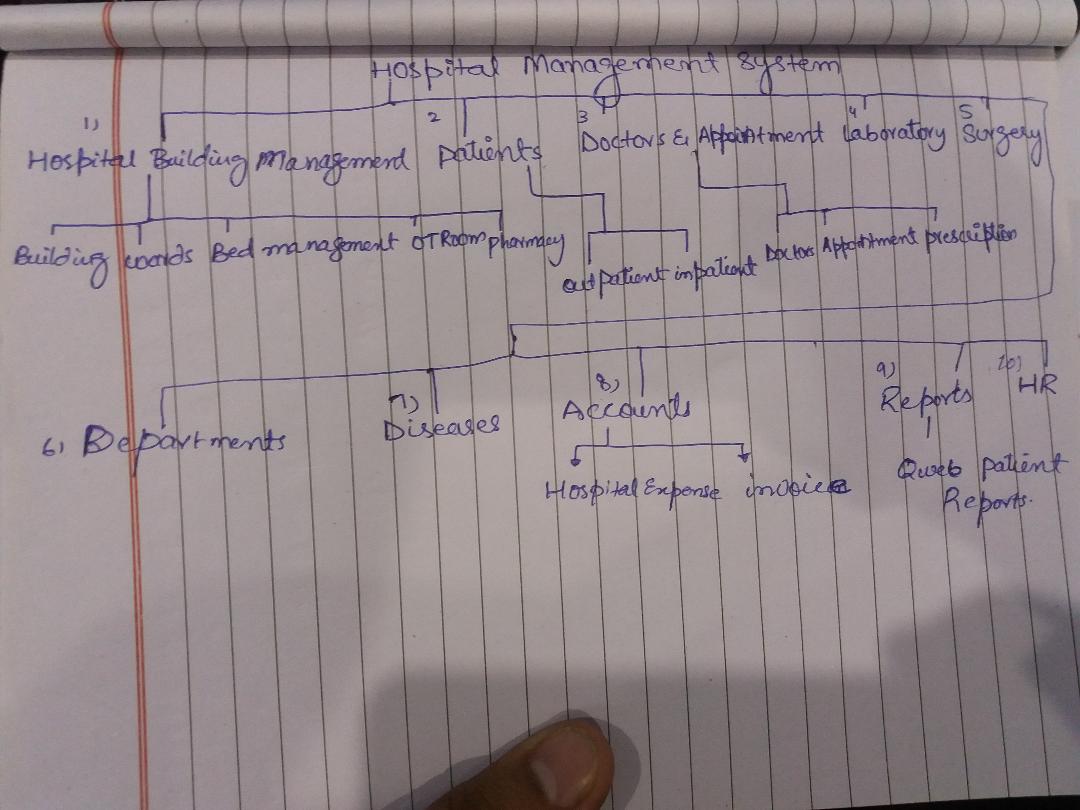 Hospital Management System
1) Hospital Building Management
2 Patients
3 Doctors & Appointment
4 Laboratory
5 Surgery
Building wards Bed management OT Room pharmacy
outpatient inpatient
Doctors Appointment prescription
6) Departments
7) Diseases
8) Accounts
9) Reports
10) HR
Hospital Expense invoice
patient
Reports.